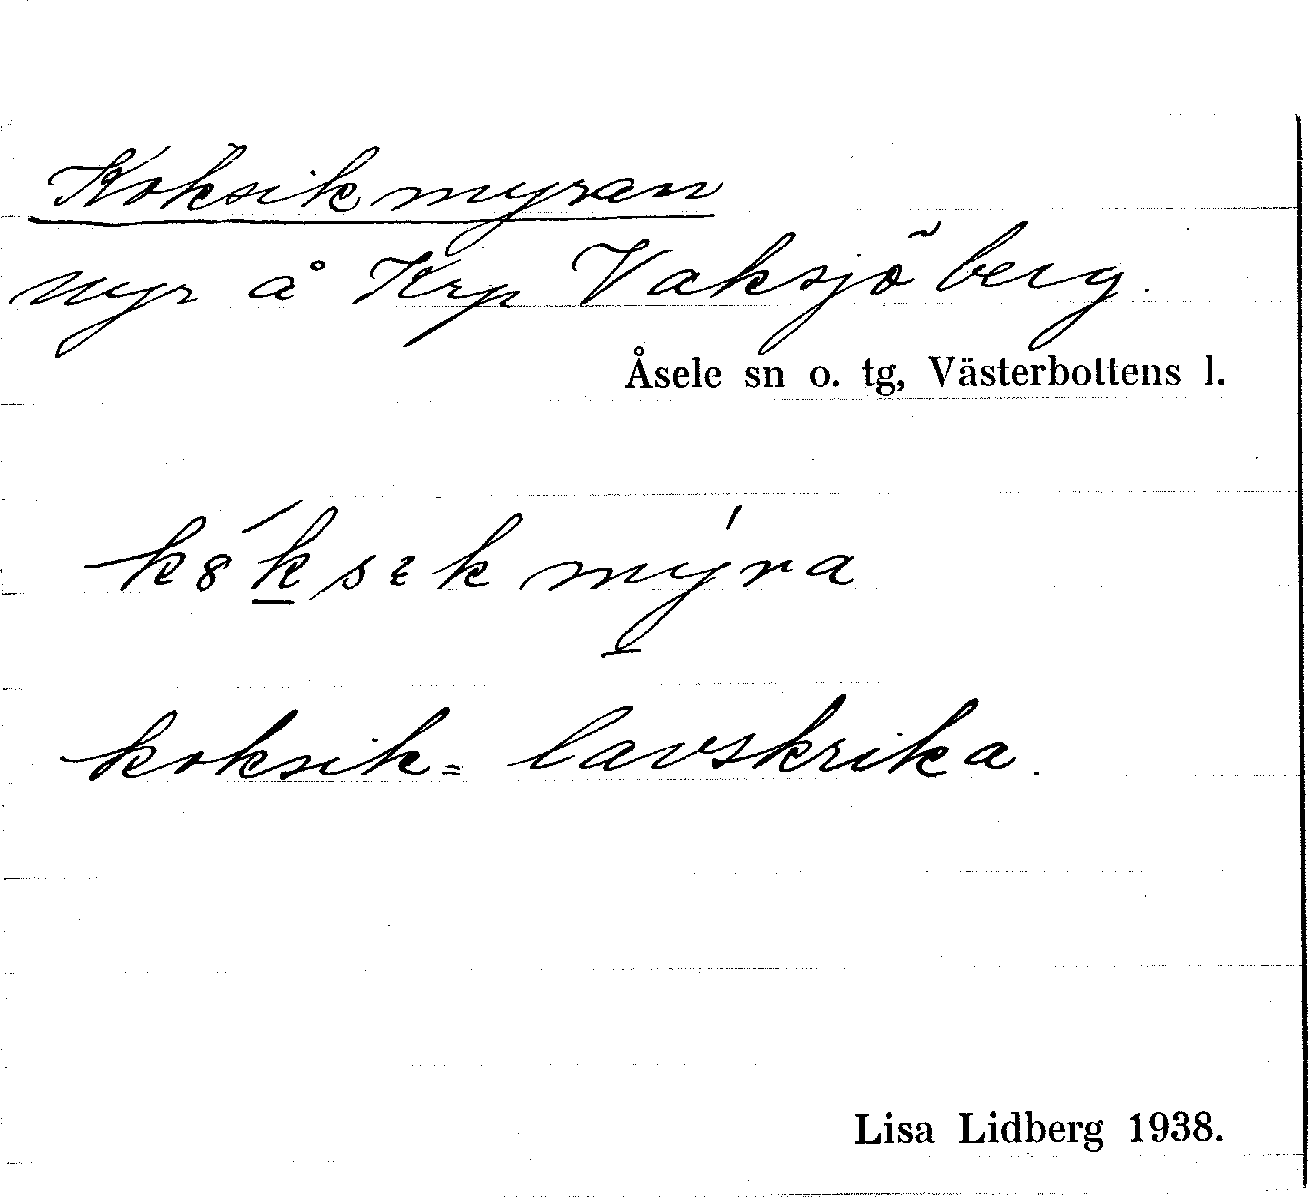 Koksikmyran
myr å Krp Vaksjöberg.
Åsele sn o. tg, Västerbottens l.
kȣ́k̲sɛkmýra
koksik = lavskrika.
Lisa Lidberg 1938.